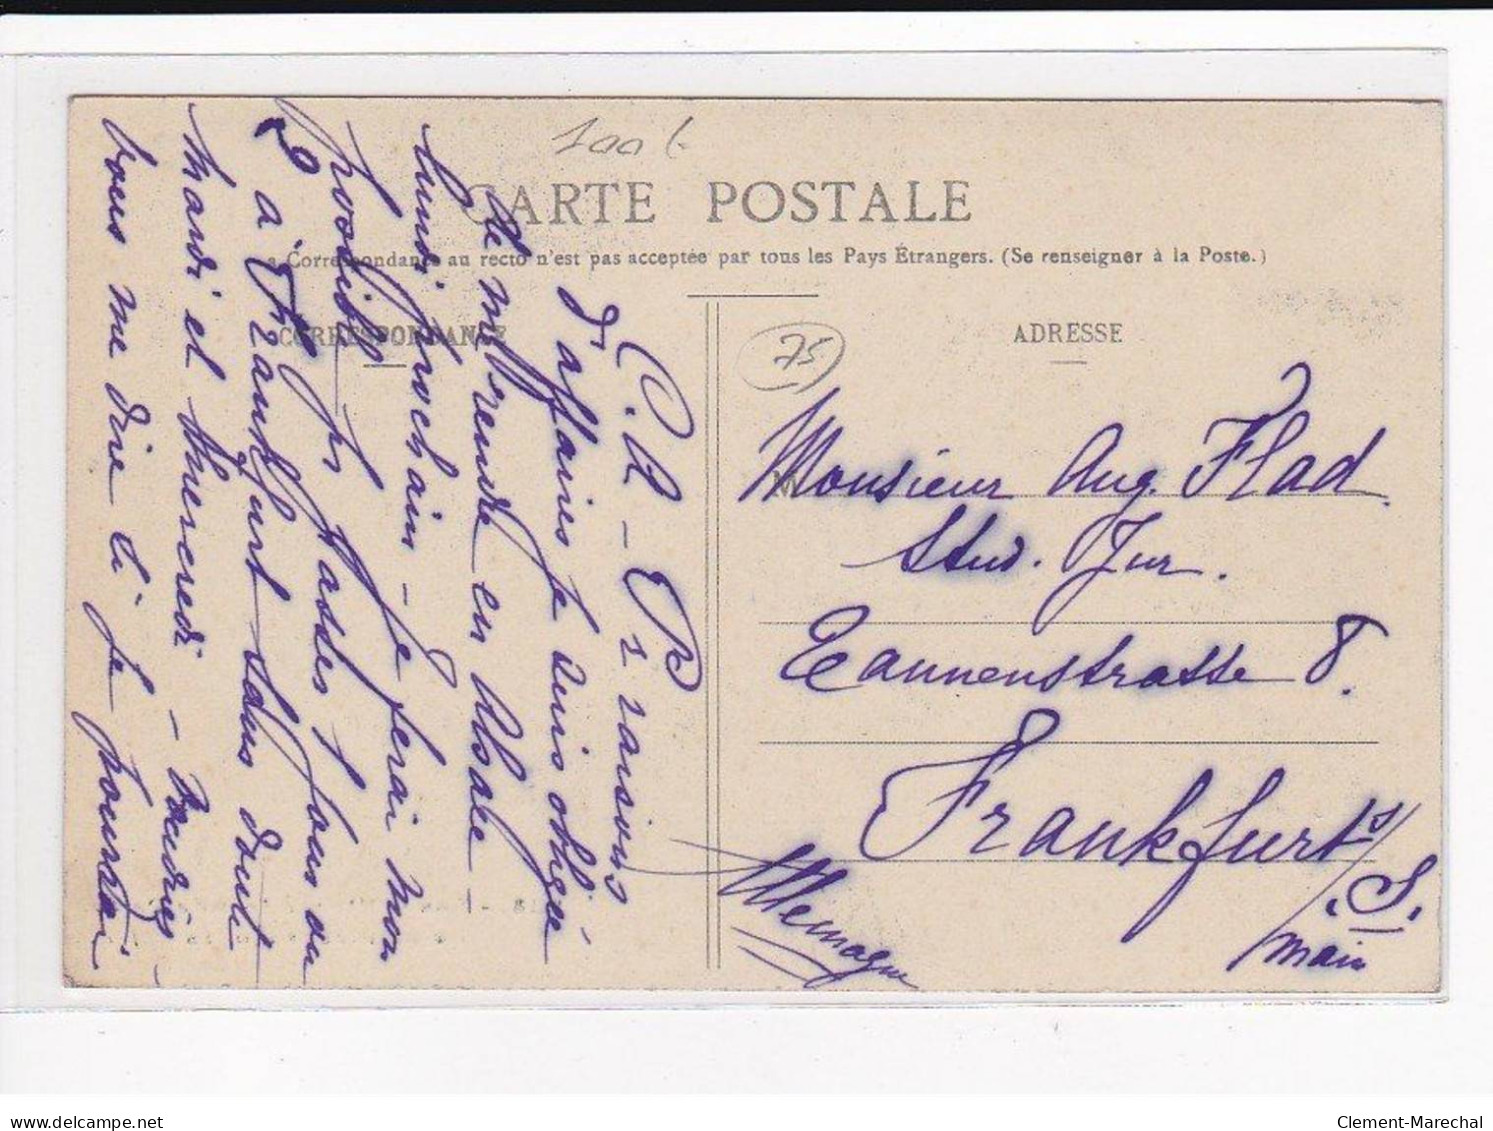 100 f
CARTE POSTALE
La Correspondance au recto n'est pas acceptée par tous les Pays Étrangers. (Se renseigner à la Poste.)
CORRESPONDANCE
C. A - Pr raisons
d'affaires je suis obligée
de me rendre en Alsace -
lundi prochain - je ferai mon
possible pr passer 1 jour ou
2 à Frankfurt sans doute
mardi et mercredi -
vous me dire si je pourrai
ADRESSE
75
M
Monsieur Aug. Flad
Stud. Jur.
Tannenstrasse 8.
Frankfurt s/
main
.S.
Allemagne
Clement-Marechal
delcampe.net